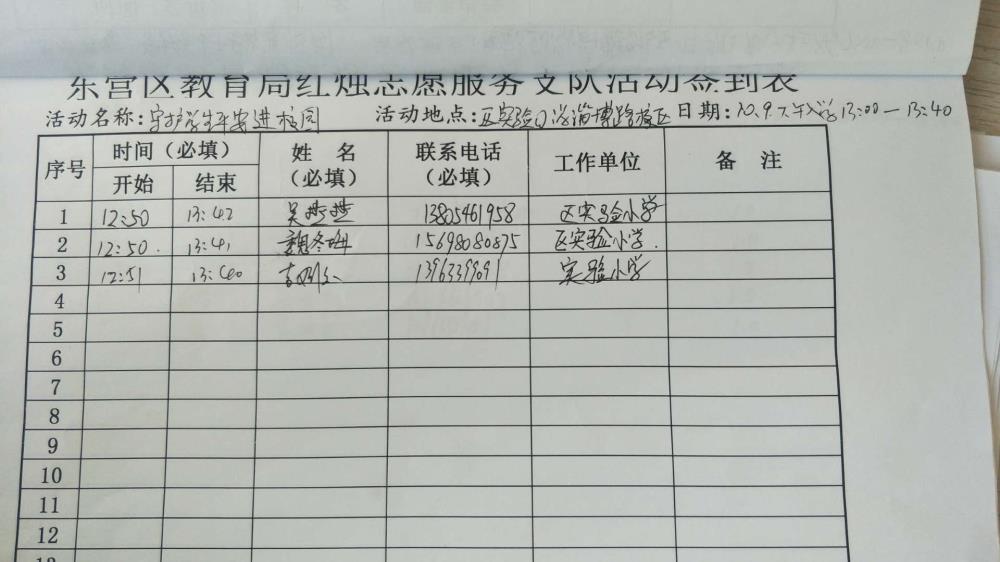 东营区教育局红烛志愿服务支队活动签到表
活动名称:守护学生平安进校园 活动地点:区实验小学淄博路校区 日期: 13:00—13:40
序号 时间(必填) 姓 名(必填) 联系电话(必填) 工作单位 备 注
开始 结束
1 12:50 13:42 吴楚楚 13805461958 区实验小学
2 12:50. 13:41 魏冬 15698080875 区实验小学.
3 12:51 13:40 1396339091 实验小学
4
5
6
7
8
9
10
11
12
13